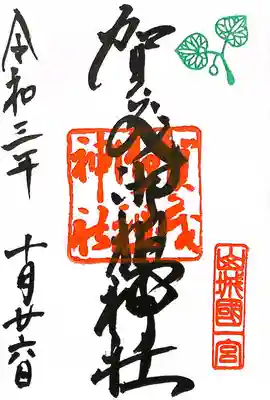 山城國一宮
賀茂御祖神社
賀茂
御祖
神社
令和三年 十月廿六日